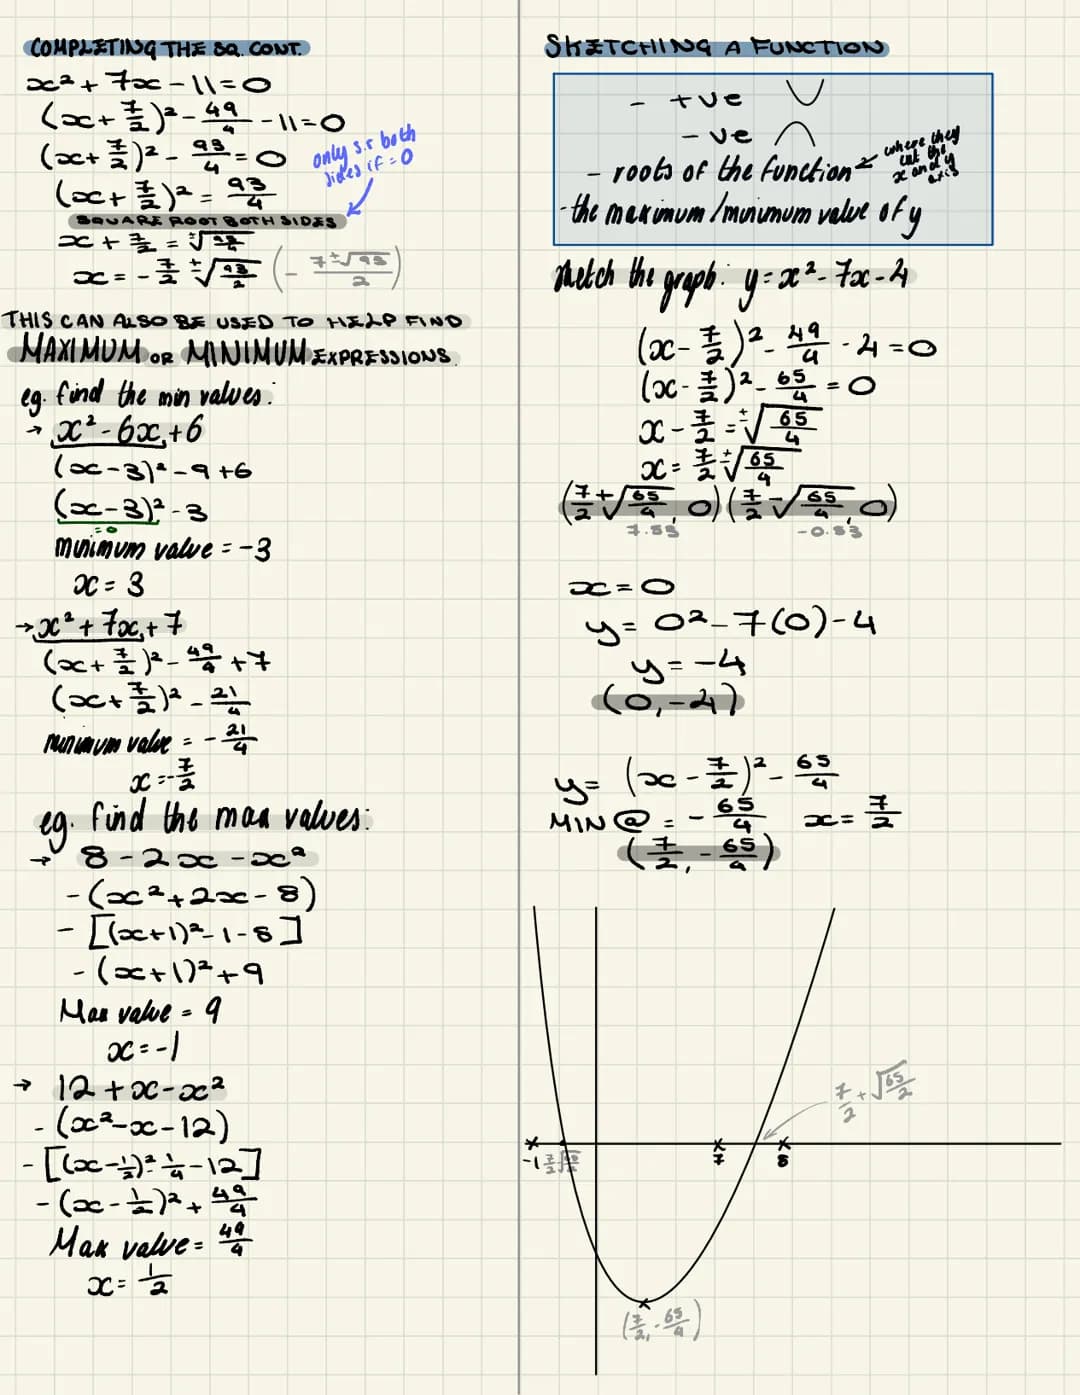 COMPLETING THE SQ. CONT.
x² + 7x - 11 = 0
(x + 7/2)² - 49/4 - 11 = 0
(x + 7/2)² - 93/4 = 0
only s.r both sides if = 0
(x + 7/2)² = 93/4
SQUARE ROOT BOTH SIDES
x + 7/2 = ±√93/4
x = -7/2 ± √93/2 (- 7±√93/2)
THIS CAN ALSO BE USED TO HELP FIND
MAXIMUM OR MINIMUM EXPRESSIONS.
eg. find the min values:
→ x² - 6x + 6
(x - 3)² - 9 + 6
(x - 3)² - 3
= 0
minimum value = -3
x = 3
→ x² + 7x + 7
(x + 7/2)² - 49/4 + 7
(x + 7/2)² - 21/4
minimum value = - 21/4
x = -7/2
eg. find the max values:
→ 8 - 2x - x²
- (x² + 2x - 8)
- [(x+1)² - 1 - 8]
- (x+1)² + 9
Max value = 9
x = -1
→ 12 + x - x²
- (x² - x - 12)
- [(x - 1/2)² - 1/4 - 12]
- (x - 1/2)² + 49/4
Max value = 49/4
x = 1/2
SKETCHING A FUNCTION
- +ve
- ve
- roots of the function
where they cut the x and y axis
- the maximum/minimum value of y
sketch the graph: y = x² - 7x - 4
(x - 7/2)² - 49/4 - 4 = 0
(x - 7/2)² - 65/4 = 0
x - 7/2 = ±√65/4
x = 7/2 ± √65/4
(7/2 + √65/4, 0) (7/2 - √65/4, 0)
7.53 -0.53
x = 0
y = 0² - 7(0) - 4
y = -4
(0, -4)
y = (x - 7/2)² - 65/4
MIN @ = - 65/4 x = 7/2
(7/2, - 65/4)
7/2 + √65/2
-1 7 8
(7/2, - 65/4)